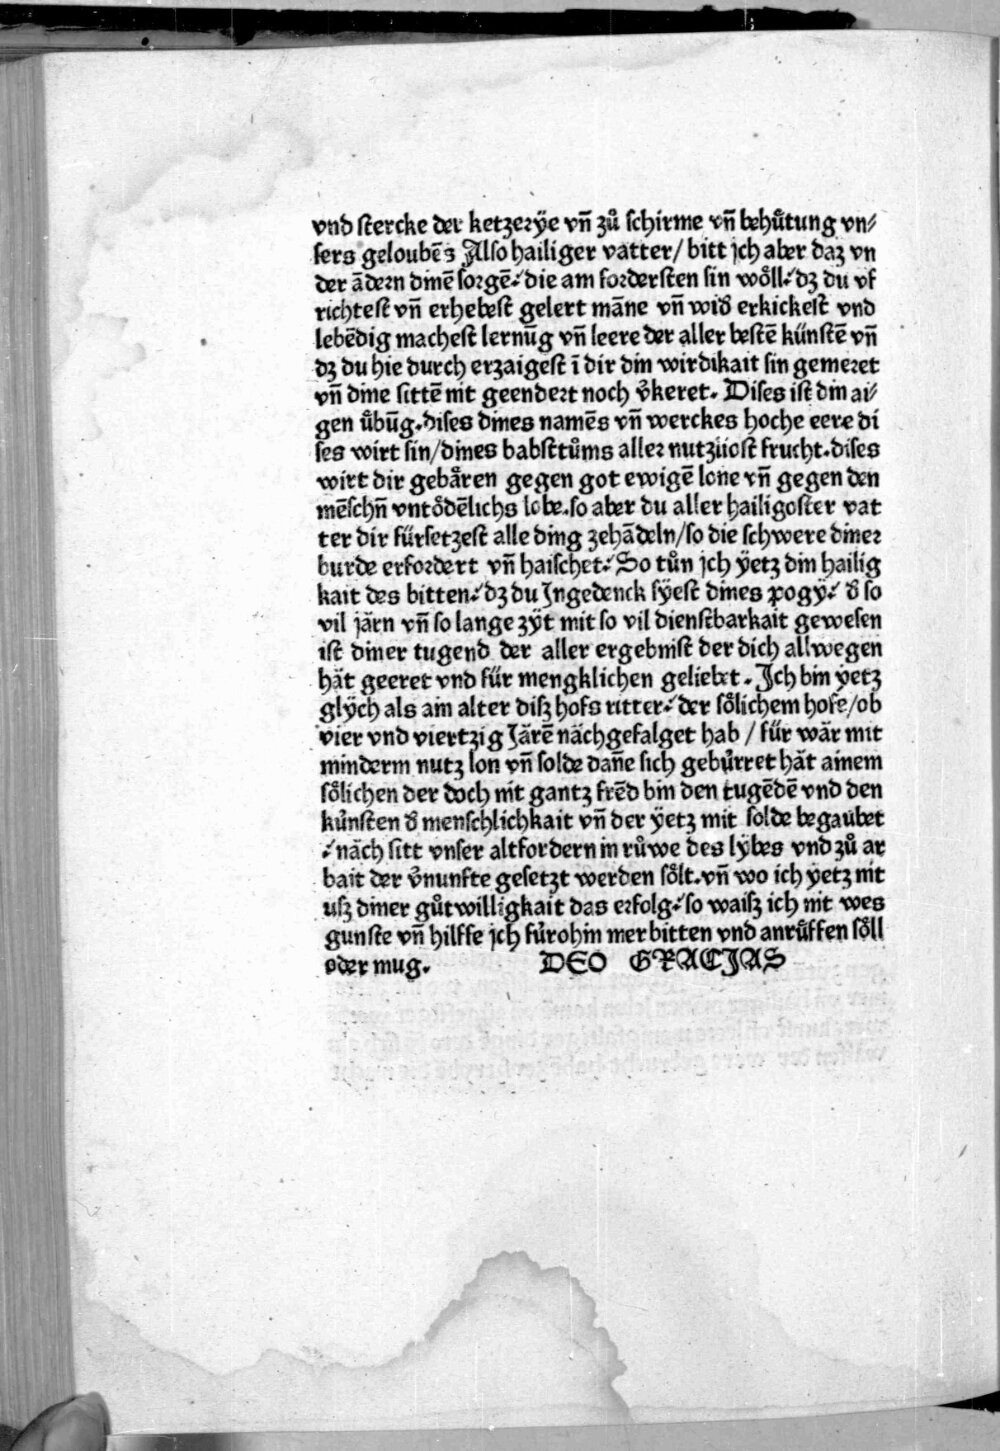 vnd stercke der ketzerÿe vn̄ zů schirme vn̄ behůtung vn⸗
sers geloubēs Also hailiger vatter/ bitt ich aber daz vn
der ādern dinē sorgē⸝ die am fordersten sin wöll⸝ dz du vf
richtest vn̄ erhebest gelert māne vn̄ wid̕ erkickest vnd
lebēdig machest lernūg vn̄ leere der aller bestē künstē vn̄
dz du hie durch erzaigest ī dir din wirdikait sin gemeret
vn̄ dine sittē nit geendert noch v̕keret. Dises ist din ai⸗
gen ůbūg. dises dines namēs vn̄ werckes hoche eere di
ses wirt sin/ dines babsttůms aller nutzlicost frucht. dises
wirt dir gebåren gegen got ewigē lone vn̄ gegen den
mēschn̄ vntödēlichs lobe. so aber du aller hailigoster vat
ter dir fürsetzest alle ding zehādeln/ so die schwere diner
burde erfordert vn̄ haischet⸝ So tůn ich ÿetz din hailig
kait des bitten⸝ dz du Ingedenck sÿest dines pogÿ⸝ d̕ so
vil järn vn̄ so lange zÿt mit so vil dienstbarkait gewesen
ist diner tugend der aller ergebnist der dich allwegen
hät geeret vnd für mengklichen geliebet. Ich bin ÿetz
glÿch als am alter disz hofs ritter⸝ der sölichem hofe/ ob
vier vnd viertzig Järē nächgefalget hab / für wär mit
minderm nutz lon vn̄ solde dan̄e sich gebůrret hät ainem
sölichen der doch nit gantz frēd bin den tugēdē vnd den
kůnsten d̕ menschlichkait vn̄ der ÿetz mit solde begaubet
⸝ näch sitt vnser altfordern in růwe des lÿbes vnd zů ar
bait der v̕nunfte gesetzt werden sölt. vn̄ wo ich ÿetz nit
usz diner gůtwilligkait das erfolg⸝ so waisz ich nit wes
gunste vn̄ hilffe ich fůrohin mer bitten vnd anrůffen söll
oder mug. DEO GRACIAS